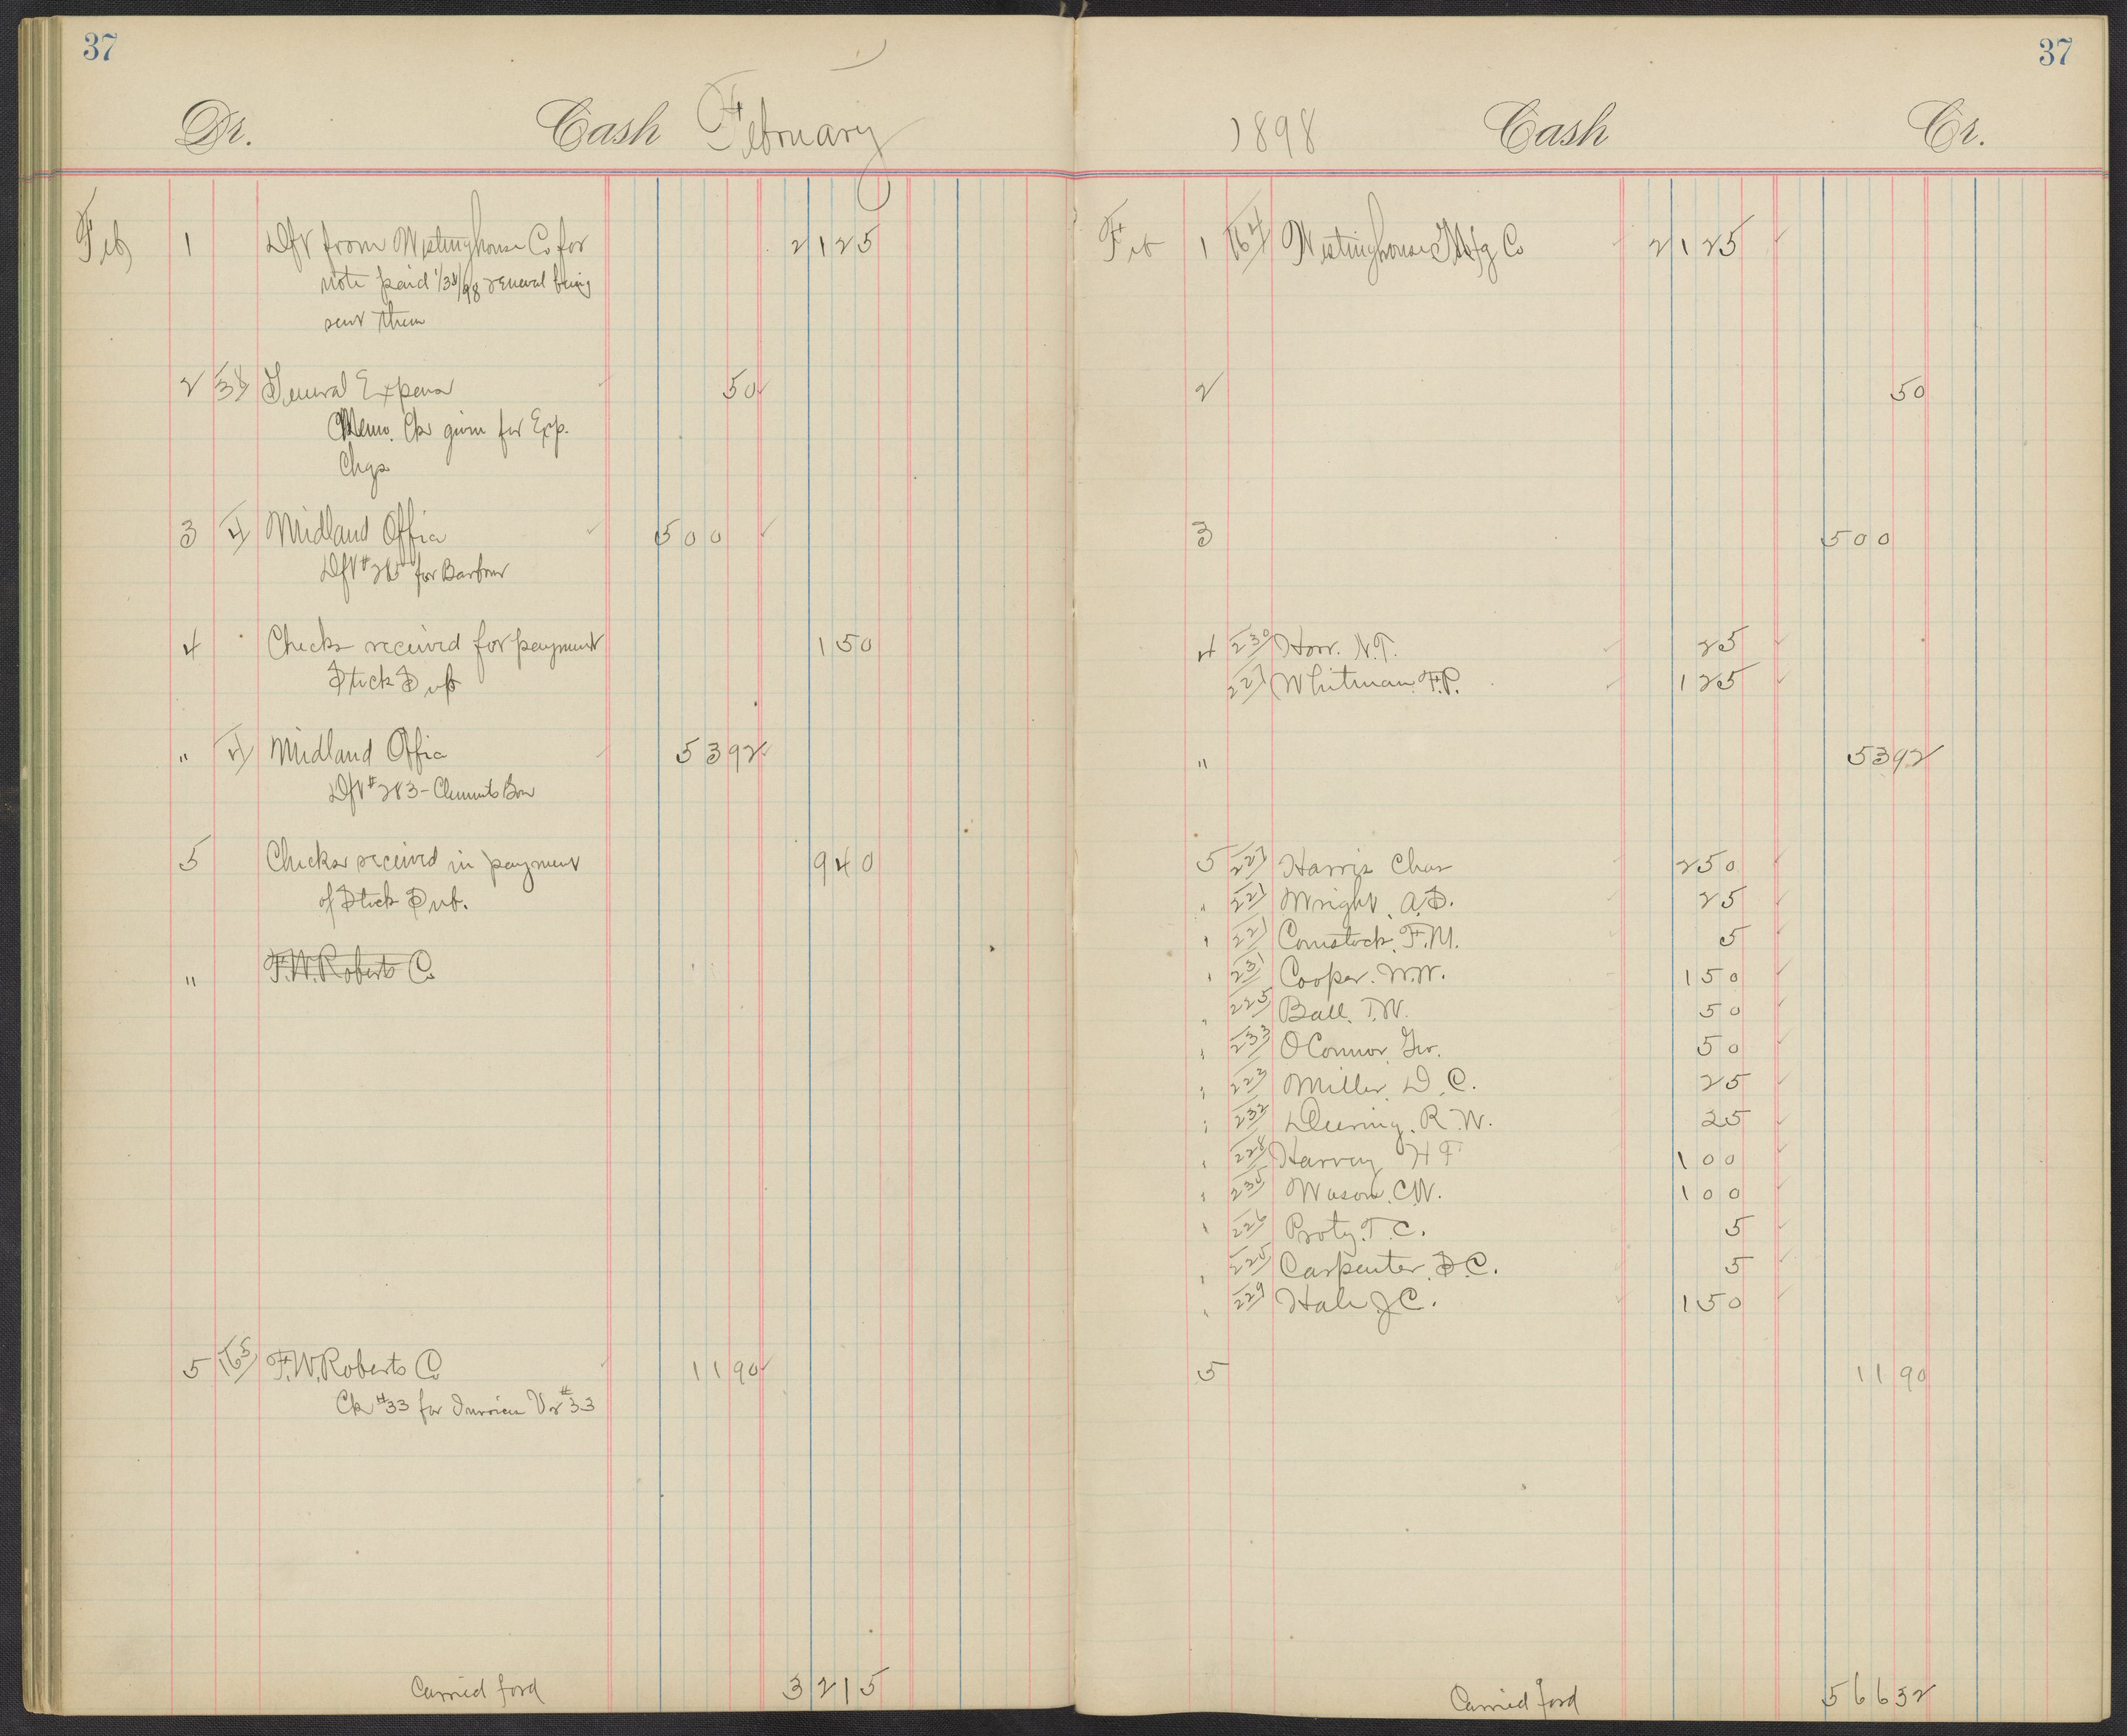 37
Dr. Cash February
Feb 1 Dft from Westinghouse Co for 2125
note paid 1/31/98 renewal being
sent them
2 38 General Expense 50
Memo. Ck given for Exp.
Chgs
3 4 Midland Office 500
Dft # 285 for Barbour
4 Checks received for payment 150
Stock Sub
" 4 Midland Office 5392
Dft # 283 - Clements Bros
5 Checks received in payment 940
of Stock Sub.
" F.W. Roberts Co
5 165 F.W. Roberts Co 1190
Ck #33 for Invoice Vr #33
Carried ford 3215
37
1898 Cash Cr.
Feb 1 164 Westinghouse Mfg Co 2125
2 50
3 500
4 230 Horr. N.T. 25
227 Whitman. F.P. 125
" 5392
5 227 Harris Chas 250
" 221 Wright. A.S. 25
" 221 Comstock. F.M. 5
" 231 Cooper. W.W. 150
" 225 Ball. T.W. 50
" 233 O'Connor. Geo. 50
" 223 Miller. D.C. 25
" 232 Deering. R.W. 25
" 228 Harvey H F 100
" 235 Wason. C.W. 100
" 226 Proty. T.C. 5
" 225 Carpenter. S.C. 5
" 229 Hale J C. 150
5 1190
Carried ford 56632